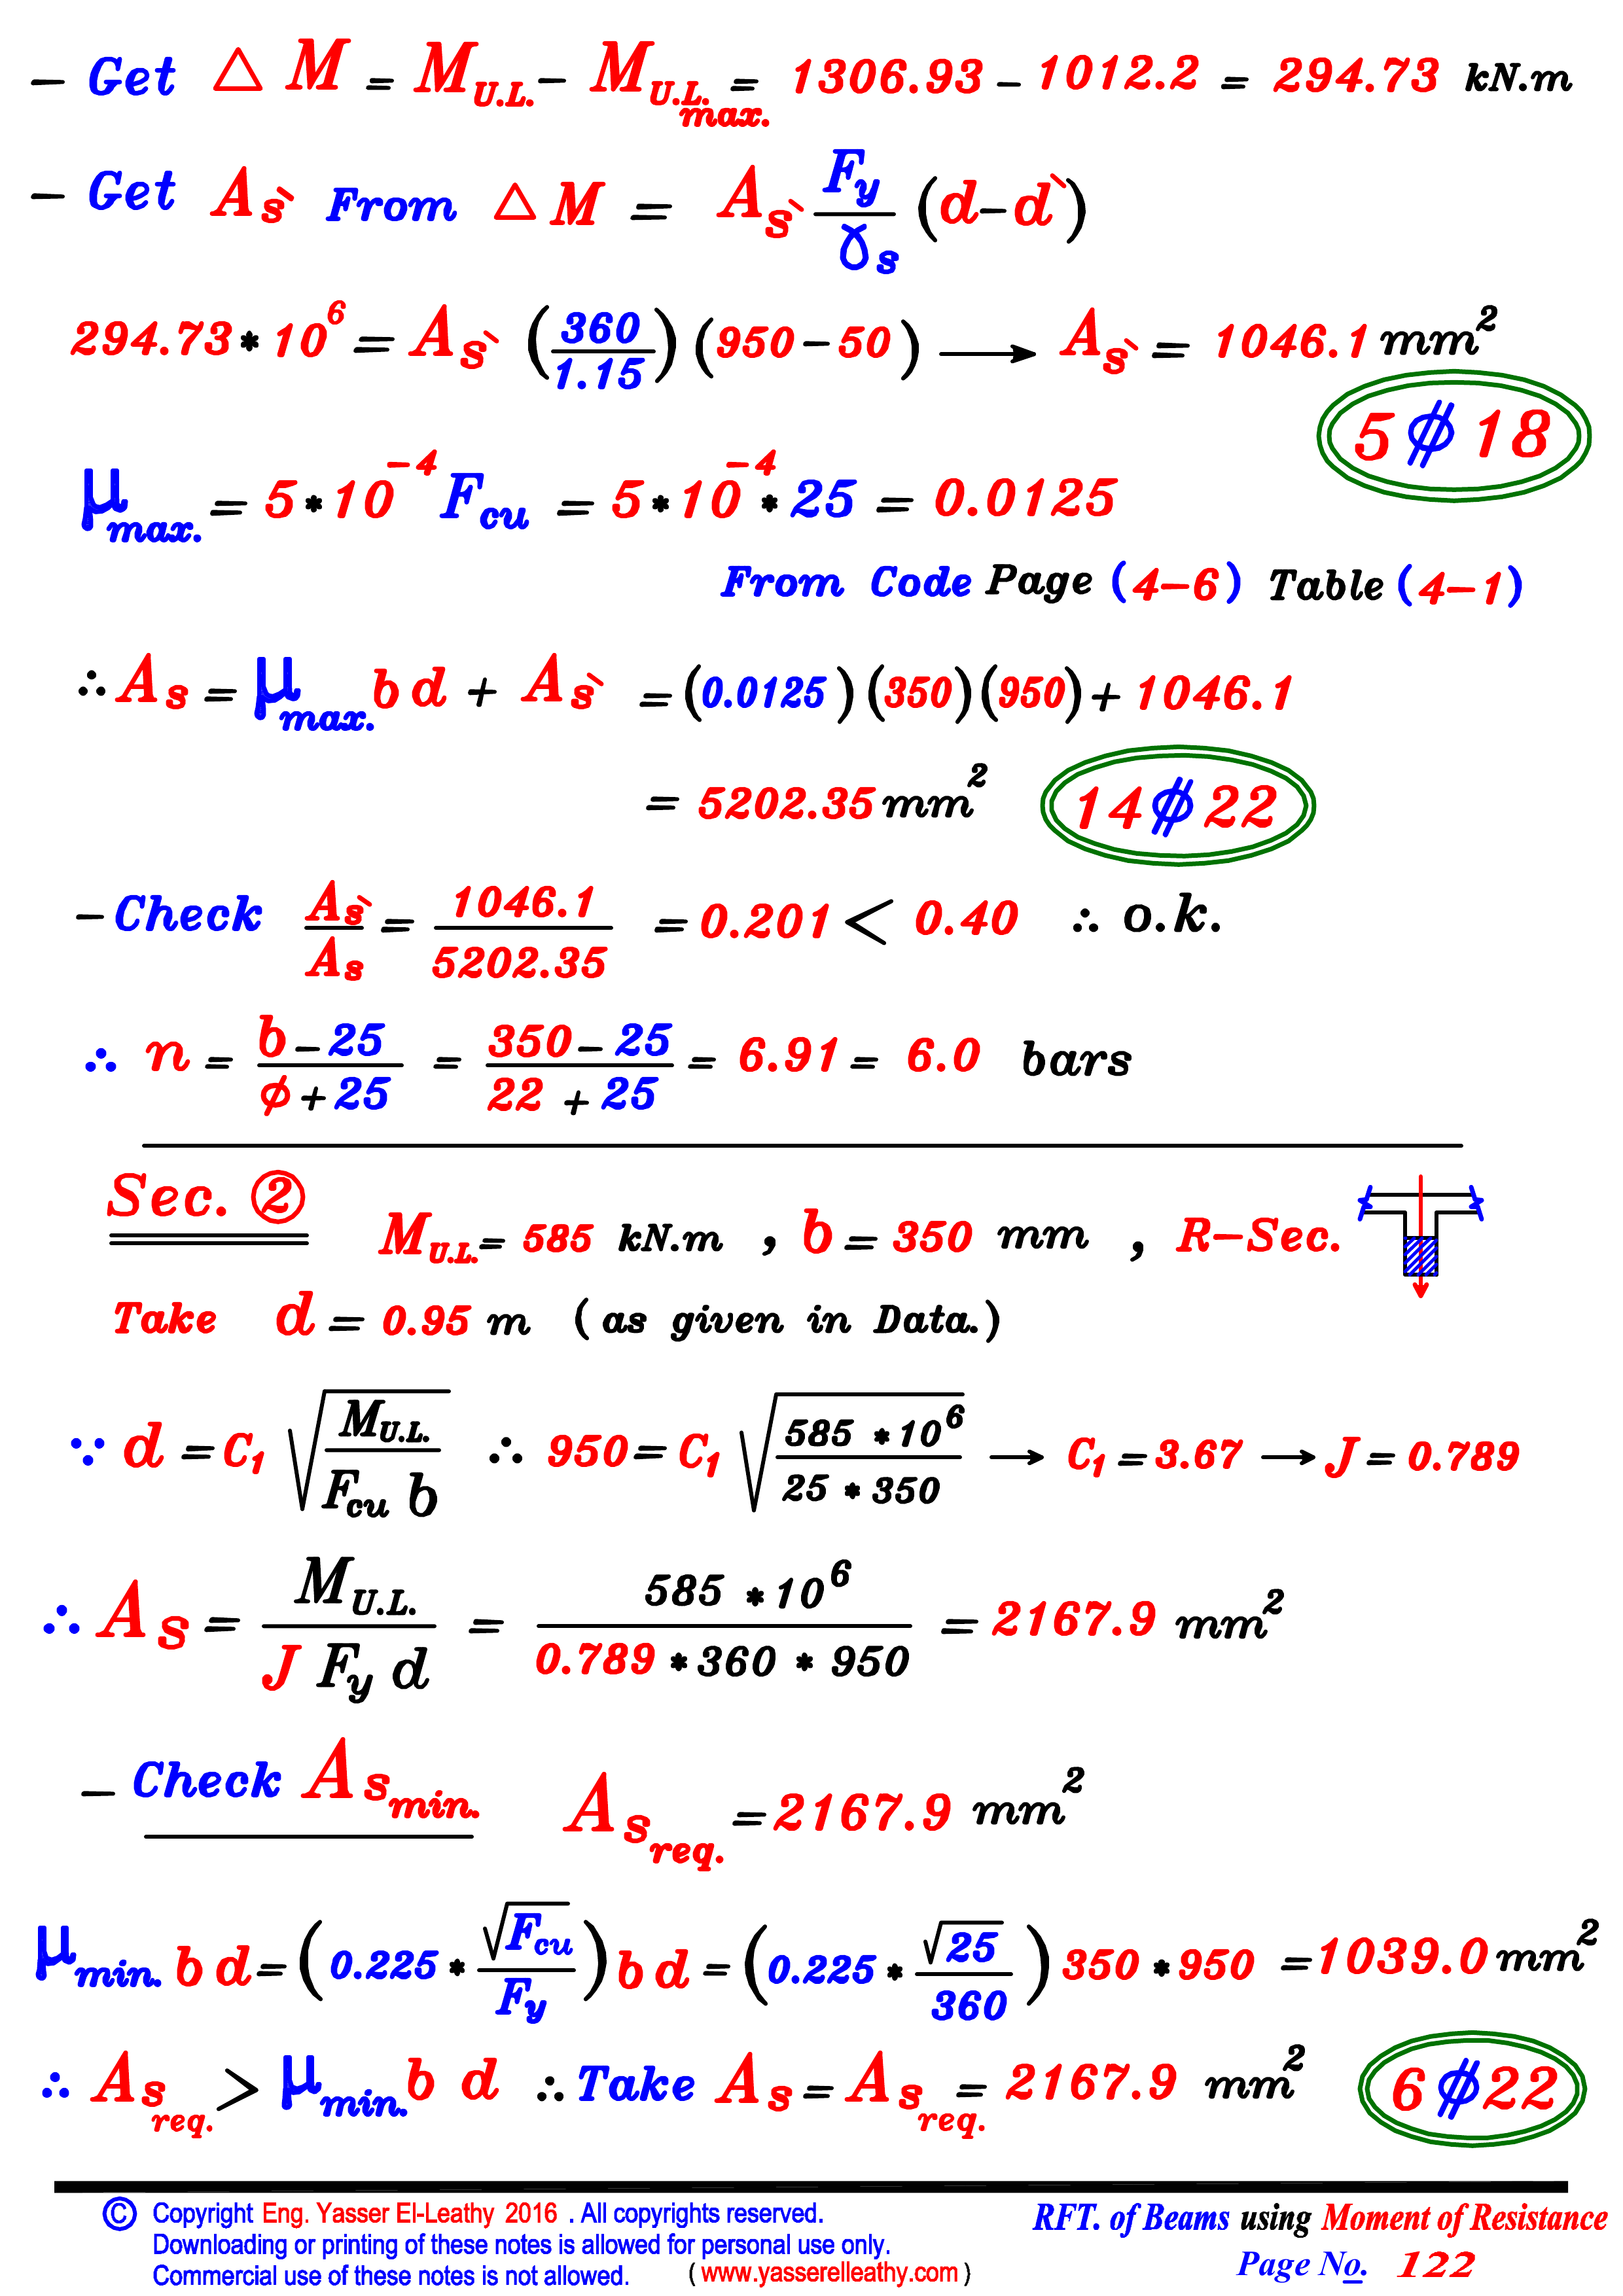 - Get △M = M U.L. - M U.L. max. = 1306.93 - 1012.2 = 294.73 kN.m
- Get As` From △M = As` Fy/γs (d-d`)
294.73*10^6 = As` (360/1.15) (950-50) → As` = 1046.1 mm²
5 ⌀ 18
μmax. = 5*10^-4 Fcu = 5*10^-4 * 25 = 0.0125
From Code Page (4-6) Table (4-1)
∴ As = μmax. b d + As` = (0.0125)(350)(950) + 1046.1
= 5202.35 mm² 14 ⌀ 22
- Check As`/As = 1046.1/5202.35 = 0.201 < 0.40 ∴ o.k.
∴ n = b-25/ϕ+25 = 350-25/22+25 = 6.91 = 6.0 bars
Sec. ②
M U.L. = 585 kN.m , b = 350 mm , R-Sec.
Take d = 0.95 m (as given in Data.)
∵ d = C1 √(M U.L./Fcu b) ∴ 950 = C1 √(585*10^6/25*350) → C1 = 3.67 → J = 0.789
∴ As = M U.L./J Fy d = 585*10^6/0.789*360*950 = 2167.9 mm²
- Check As min. As req. = 2167.9 mm²
μmin. b d = (0.225*√Fcu/Fy) b d = (0.225*√25/360) 350*950 = 1039.0 mm²
∴ As req. > μmin. b d ∴ Take As = As req. = 2167.9 mm² 6 ⌀ 22
© Copyright Eng. Yasser El-Leathy 2016 . All copyrights reserved.
Downloading or printing of these notes is allowed for personal use only.
Commercial use of these notes is not allowed. ( www.yasserelleathy.com )
RFT. of Beams using Moment of Resistance
Page No. 122